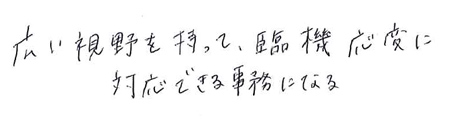 広い視野を持って、臨機応変に
対応できる事務になる